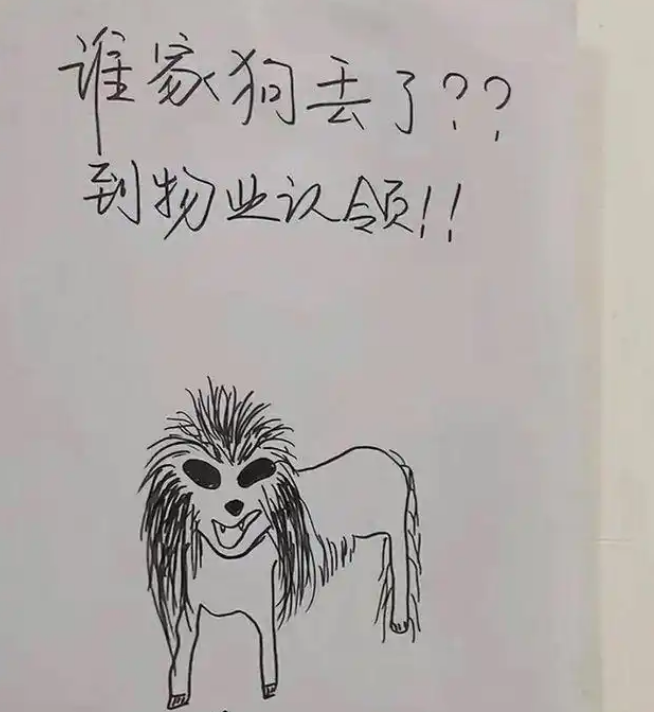 谁家狗丢了??
到物业认领!!